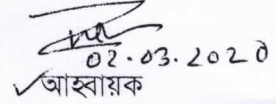 02.03.2020
আহবায়ক